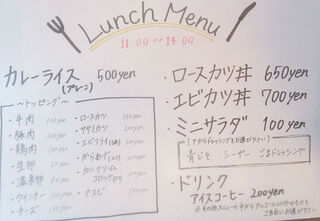 Lunch Menu
11:00 〜 14:00
カレーライス 500yen
(プレーン)
〜トッピング〜
・牛肉 100yen
・豚肉 100yen
・鶏肉 100yen
・生卵
・温泉卵
・ウインナー 100yen
・チーズ
・ロースカツ
・ササミカツ 200yen
・エビフライ
・からあげ
・カニクリーム
コロッケ
・ナスビ 100yen
・ロースカツ丼 650yen
・エビカツ丼 700yen
・ミニサラダ 100yen
(下からドレッシングをお選び下さい)
青じそ シーザー ごまドレッシング
・ドリンク
アイスコーヒー 200yen